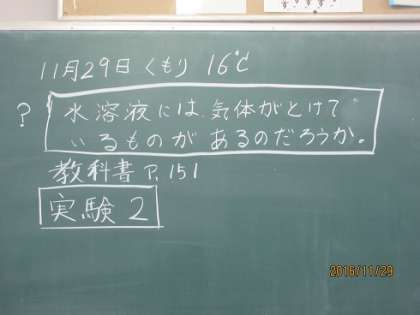 11月29日 くもり 16℃
? 水溶液には気体がとけて
いるものがあるのだろうか。
教科書 P.151
実験2
2016/11/29